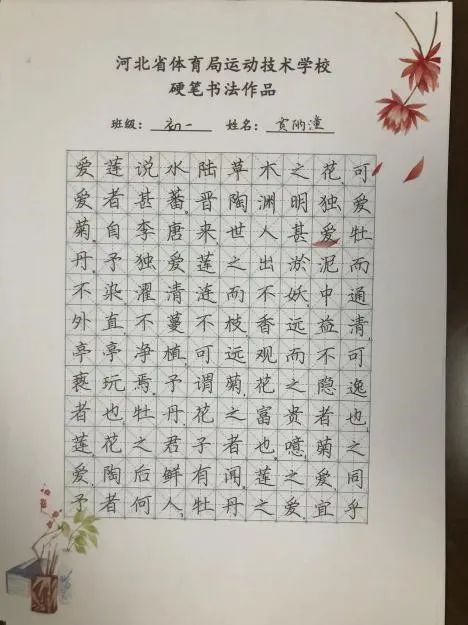 河北省体育局运动技术学校
硬笔书法作品
班级：初一 姓名：
爱莲说水陆草木之花，可
爱者甚蕃。晋陶渊明独爱
菊。自李唐来，世人甚爱牡
丹。予独爱莲之出淤泥而
不染濯清涟而不妖，中通
外直，不蔓不枝，香远益清，
亭亭净植，可远观而不可
亵玩焉。予谓菊，花之隐逸
者也，牡丹，花之富贵者也，
莲，花之君子者也。噫，菊之
爱，陶后鲜有闻。莲之爱同
予者何人，牡丹之爱，宜乎